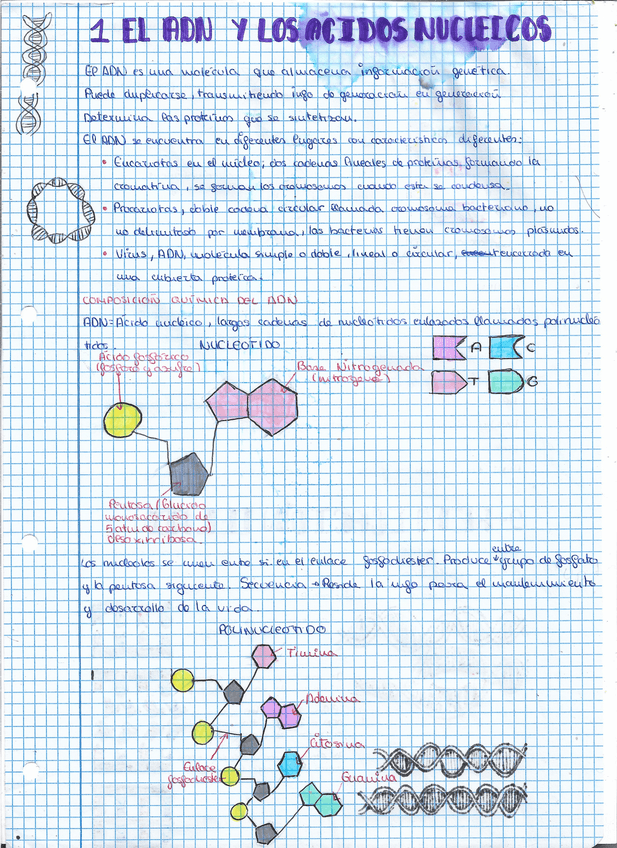 1 EL ADN Y LOS ACIDOS NUCLEICOS
El ADN es una molécula que almacena información genética.
Puede duplicarse, transmitiendo info de generación en generación
Determina las proteínas que se sintetizan.
El ADN se encuentra en diferentes lugares con características diferentes:
• Eucariotas en el núcleo, dos cadenas lineales de proteínas formando la
cromatina, se forman los cromosomas cuando esta se condensa.
• Procariotas, doble cadena circular llamada cromosoma bacteriano, no
no delimitado por membrana, las bacterias tienen cromosomas plásmidos.
• Virus, ADN, molécula simple o doble, lineal o circular, encerrada en
una cubierta proteica.
COMPOSICIÓN QUÍMICA DEL ADN
ADN=Ácido nucleico, largas cadenas de nucleótidos enlazados llamados polinucleó
tidos.
NUCLEOTIDO
Ácido fosfórico
(fosforo y azufre)
Base Nitrogenada
(nitrogeno)
A
C
T
G
Pentosa/Glucido
monosacárido de
5 atm de carbono)
desoxirribosa.
Los nucleolos se unen entre si en el enlace fosfodiester. Produce entre grupo de fosfato
y la pentosa siguiente. Secuencia → Reside la info para el mantenimiento
y desarrollo de la vida.
POLINUCLEOTIDO
Timina
Adenina
Citosina
Enlace
fosfodiester
Guanina